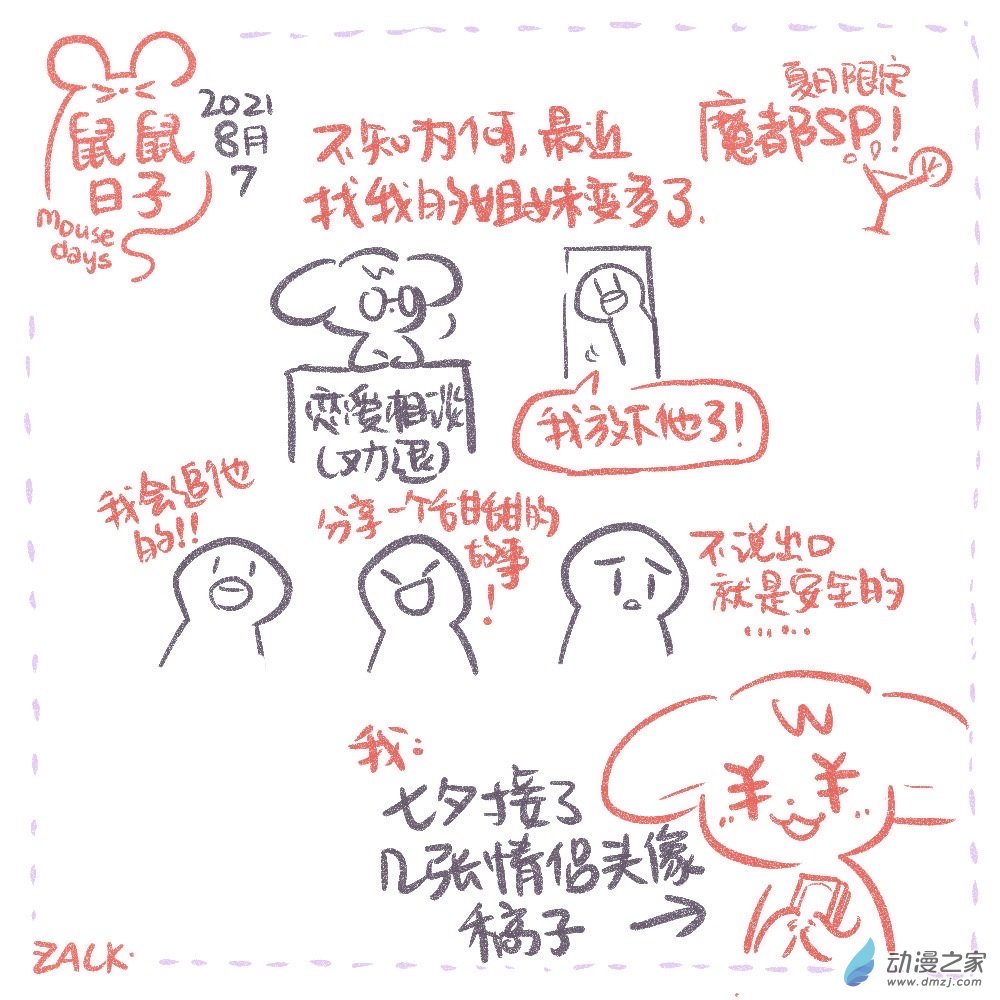 鼠鼠
日子
mouse
days
2021
8月
7
不知为何,最近
找我的姐妹变多了.
夏日限定
魔都SP!
恋爱相谈
(劝退)
我放不他了!
我会追他
的!!
分享一个甜甜的
故事
!
不说出口
就是安全的
......
我:
七夕接了
几张情侣头像
稿子→
ZALK.
动漫之家
www.dmzj.com